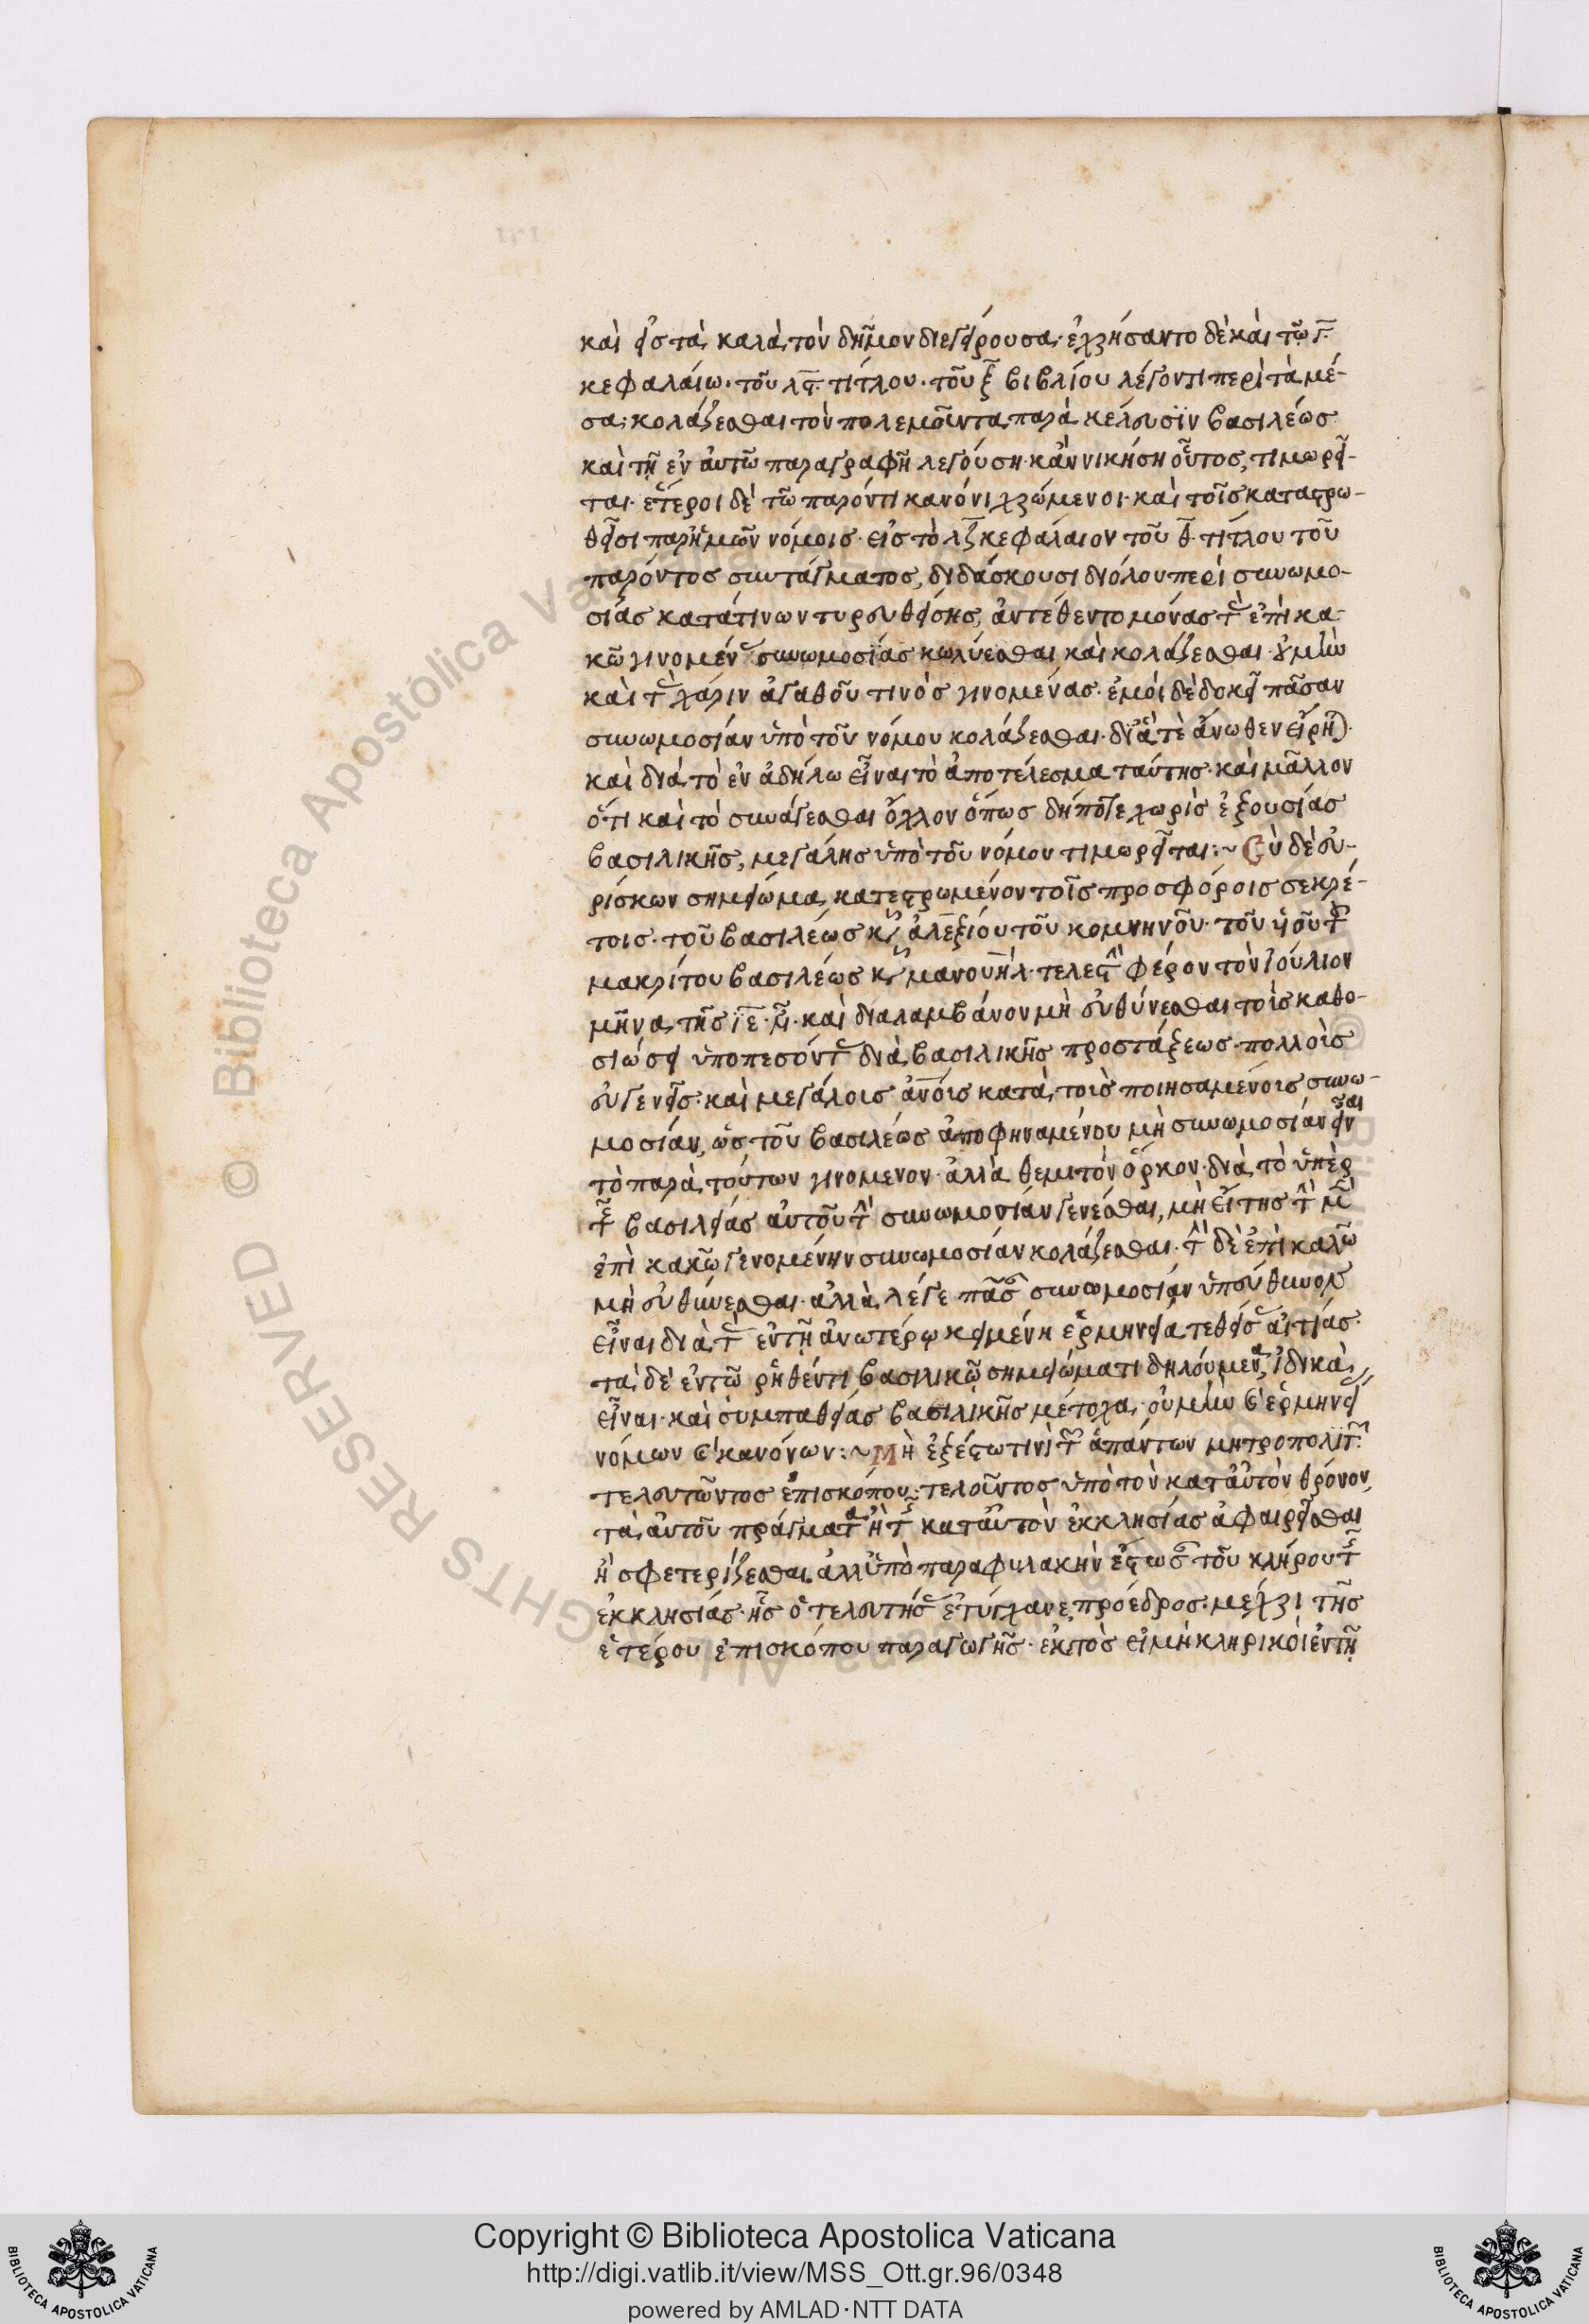 καὶ εἰς τὰ καλὰ τὸν δῆμον διεγείρουσα· ἐχρήσαντο δὲ καὶ τῶ γ̅
κεφαλαίω· τοῦ λϛ̅· τίτλου· τοῦ ξ̅ βιβλίου λέγοντι περὶ τὰ μέ-
σα· κολάζεσθαι τὸν πολεμοῦντα παρὰ κέλευσϊν βασιλέως
καὶ τῆ ἐν αὐτῶ παραγραφῆ λεγούση· κἂν νικήση οὗτος, τιμωρεῖ-
ται· ἕτεροι δὲ τῶ παρόντι κανόνι χρώμενοι· καὶ τοῖς καταστρω-
θεῖσι παρ' ἡμῶν νόμοις· εἰς τὸ λζ̅ κεφάλαιον τοῦ θ̅· τίτλου τοῦ
παρόντος συντάγματος, διδάσκουσι διόλου περὶ συνωμο-
σίας κατά τινων τυρευθείσης, ἀντέθεντο μόνας τὰς ἐπὶ κα-
κῶ γινομένας συνωμοσίας κωλύεσθαι καὶ κολάζεσθαι· οὐ μὴν
καὶ τὰς χάριν ἀγαθοῦ τινὸς γινομένας· ἐμοὶ δὲ δοκεῖ πᾶσαν
συνωμοσίαν ὑπὸ τοῦ νόμου κολάζεσθαι· διά τε ἄνωθεν εἴρηται·
καὶ διὰ τὸ ἐν ἀδήλω εἶναι τὸ ἀποτέλεσμα ταύτης· καὶ μᾶλλον
ὅτι καὶ τὸ συνάγεσθαι ὄχλον ὅπως δήποτε χωρὶς ἐξουσίας
βασιλικῆς, μεγάλης ὑπὸ τοῦ νόμου τιμωρεῖται:~ Σὺ δὲ εὑ-
ρίσκων σημείωμα κατεστρωμένον τοῖς προσφόροις σεκρέ-
τοις· τοῦ βασιλέως κυροῦ ἀλεξίου τοῦ κομνηνοῦ· τοῦ υἱοῦ τοῦ
μακρίτου βασιλέως κυροῦ μανουὴλ· τελεστὴν φέρον τὸν Ἰούλιον
μῆνα τῆς ιε̅· ἰνδ· καὶ διαλαμβάνον μὴ εὐθύνεσθαι τοὶς καθο-
σιώσει ὑποπεσόντας διὰ βασιλικῆς προστάξεως· πολλοὶς
εὐγενεῖς· καὶ μεγάλοις ἀν̅οις κατὰ τοὶς ποιησαμένοις συνω-
μοσίαν, ὡς τοῦ βασιλέως ἀποφηναμένου μὴ συνωμοσίαν εἶναι
τὸ παρὰ τούτων γινομενον· ἀλλὰ θεμιτὸν ὅρκον· διὰ τὸ ὑπὲρ
τῆς βασιλείας αὐτοῦ τὴν συνωμοσίαν γενέσθαι, μὴ εἴπης τὴν μὲν
ἐπὶ κακῶ γενομένην συνωμοσίαν κολάζεσθαι· τὴν δὲ ἐπὶ καλῶ
μὴ εὐθύνεσθαι· ἀλλὰ λέγε πᾶσαν συνωμοσίαν ὑπεύθυνον
εἶναι διὰ τὰς ἐν τῆ ἀνωτέρω κειμένη ἑρμηνεία τεθείσας αἰτίας·
τὰ δὲ ἐν τῶ ῥηθέντι βασιλικῶ σημειώματι δηλούμενα, ἰδικὰ
εἶναι· καὶ συμπαθείας βασιλικῆς μέτοχα· οὐ μὴν καὶ ἑρμηνεία
νόμων καὶ κανόνων:~ Μὴ ἐξέστω τινὶ τῶν ἁπάντων μητροπολίτη·
τελευτῶντος ἐπισκόπου τελοῦντος ὑπὸ τὸν κατ' αὐτὸν θρόνον,
τὰ αὐτοῦ πράγματα ἢ τῆς κατ' αὐτὸν ἐκκλησίας ἀφαιρεῖσθαι
ἢ σφετερίζεσθαι. ἀλλ' ὑπὸ παραφυλακὴν ἔστωσαν τοῦ κλήρου τῆς
ἐκκλησίας· ἧς ὁ τελευτήσας ἐτύγχανε πρόεδρος· μέχρι τῆς
ἑτέρου ἐπισκόπου παραγωγῆς· ἐκτὸς εἰ μὴ κληρικοὶ ἐν τῆ
Copyright © Biblioteca Apostolica Vaticana
http://digi.vatlib.it/view/MSS_Ott.gr.96/0348
powered by AMLAD·NTT DATA
BIBLIOTECA APOSTOLICA VATICANA
BIBLIOTECA APOSTOLICA VATICANA